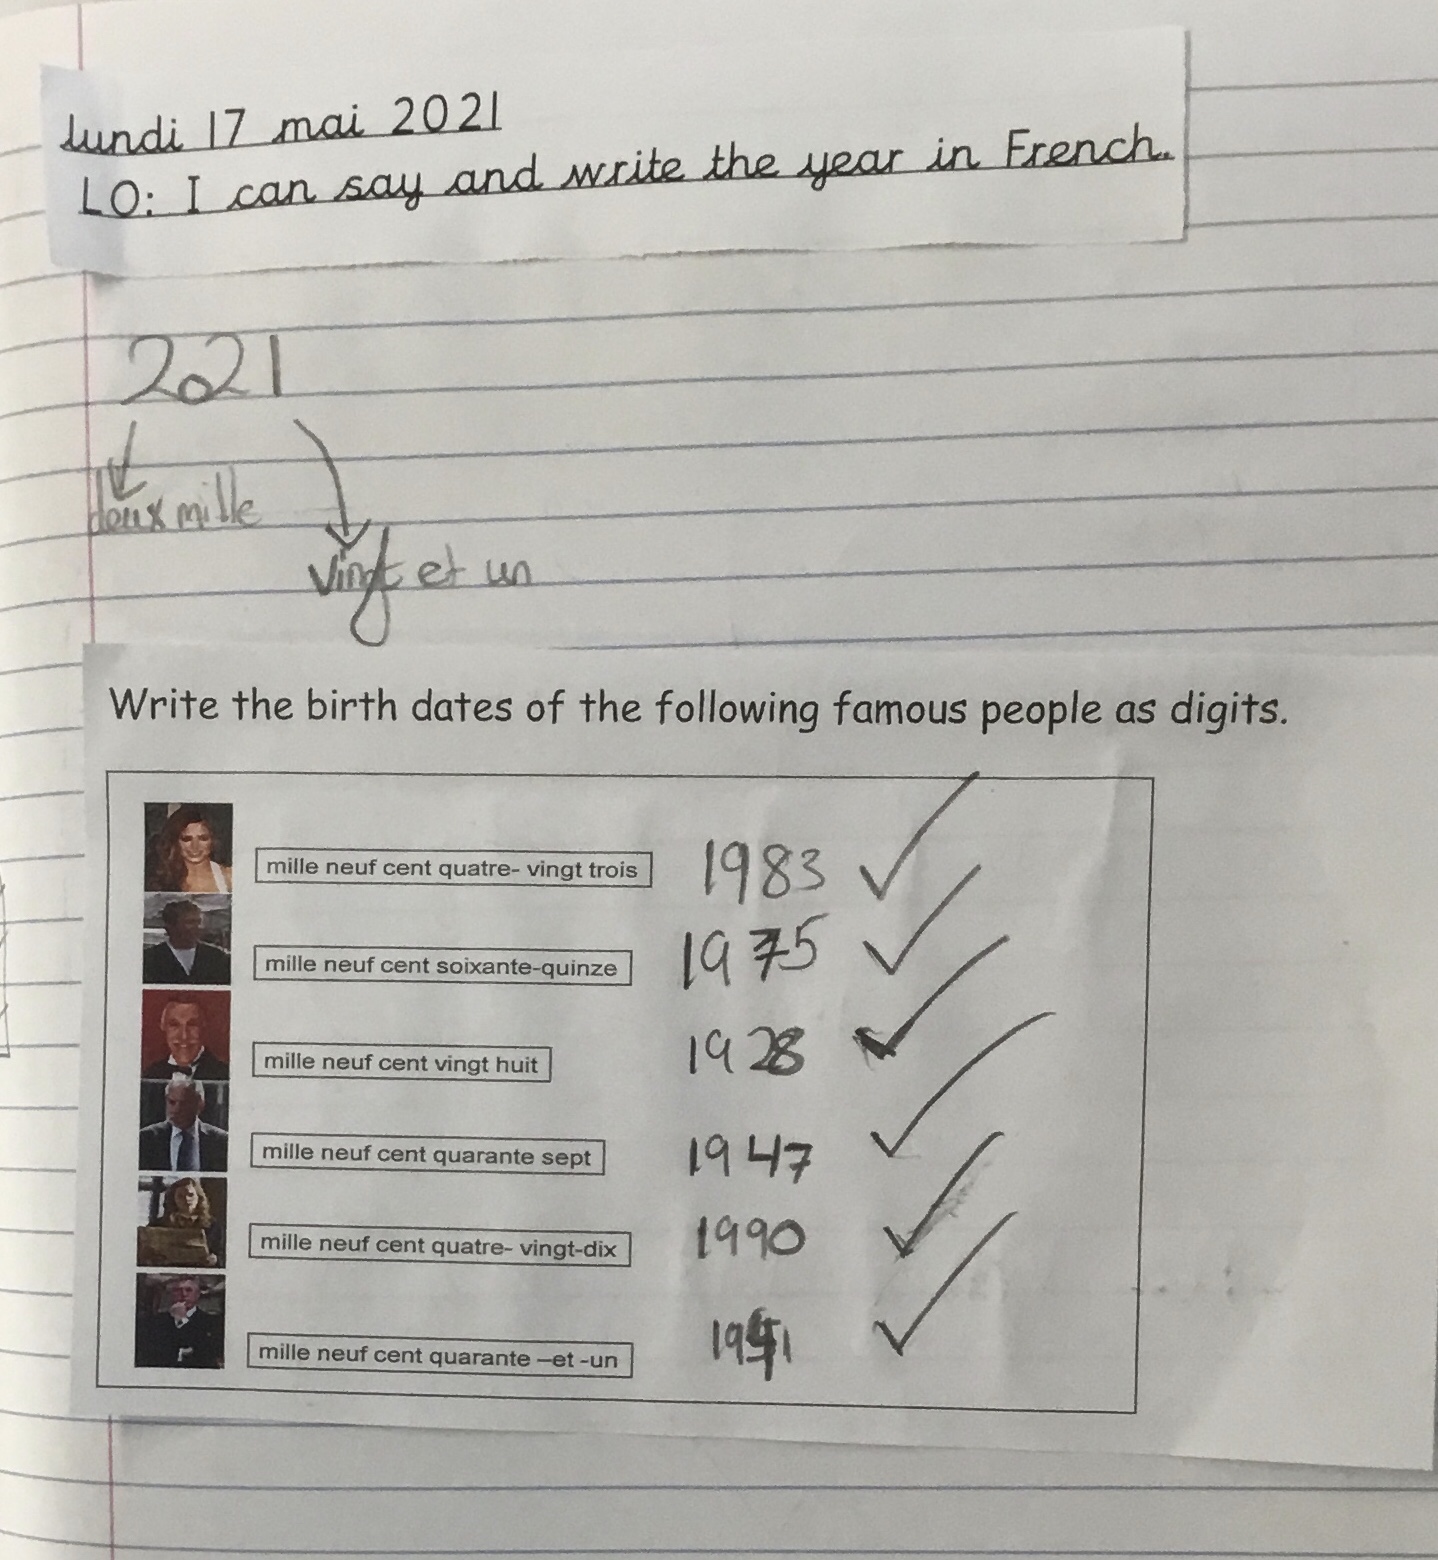 lundi 17 mai 2021
LO: I can say and write the year in French.
2021
deux mille
vingt et un
Write the birth dates of the following famous people as digits.
mille neuf cent quatre- vingt trois 1983
mille neuf cent soixante-quinze 1975
mille neuf cent vingt huit 1928
mille neuf cent quarante sept 1947
mille neuf cent quatre- vingt-dix 1990
mille neuf cent quarante –et -un 1941